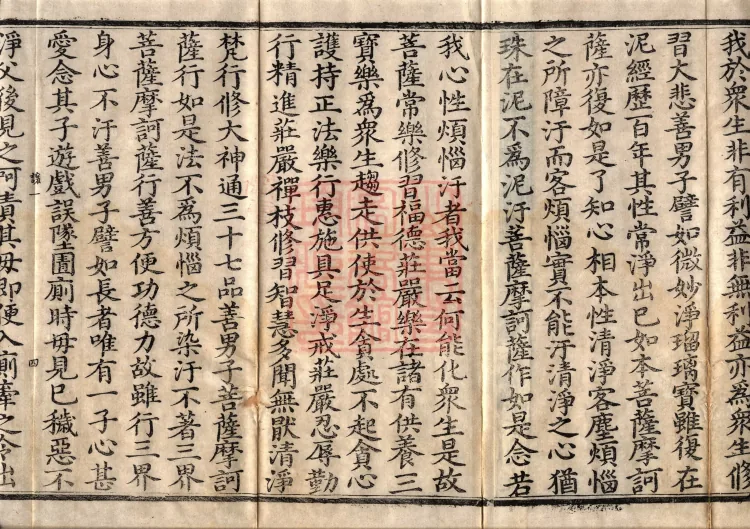 我於眾生非有利益非無利益亦為眾生修
習大悲善男子譬如微妙淨瑠璃寶雖復在
泥經歷百年其性常淨出已如本菩薩摩訶
薩亦復如是了知心相本性清淨客塵煩惱
之所障汙而客煩惱實不能汙清淨之心猶
珠在泥不為泥汙菩薩摩訶薩作如是念若
我心性煩惱汙者我當云何能化眾生是故
菩薩常樂修習福德莊嚴樂在諸有供養三
寶樂為眾生趨走供使於生貪處不起貪心
護持正法樂行惠施具足淨戒莊嚴忍辱勤
行精進莊嚴禪枝修習智慧多聞無猒清淨
梵行修大神通三十七品善男子菩薩摩訶
薩行如是法不為煩惱之所染汙不著三界
菩薩摩訶薩行善方便功德力故雖行三界
身心不汙善男子譬如長者唯有一子心甚
愛念其子遊戲誤墜圊廁時母見已穢惡不
淨父後見之呵責其母即便入廁牽之令出
四